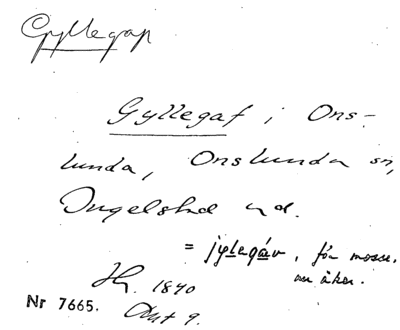 Gyllegap
Gyllegaf i Ons-
lunda, Onslunda sn,
Ingelstad hd.
= jylegáv, för mosse.
nu åker.
1840
Nr 7665. Akt 9.